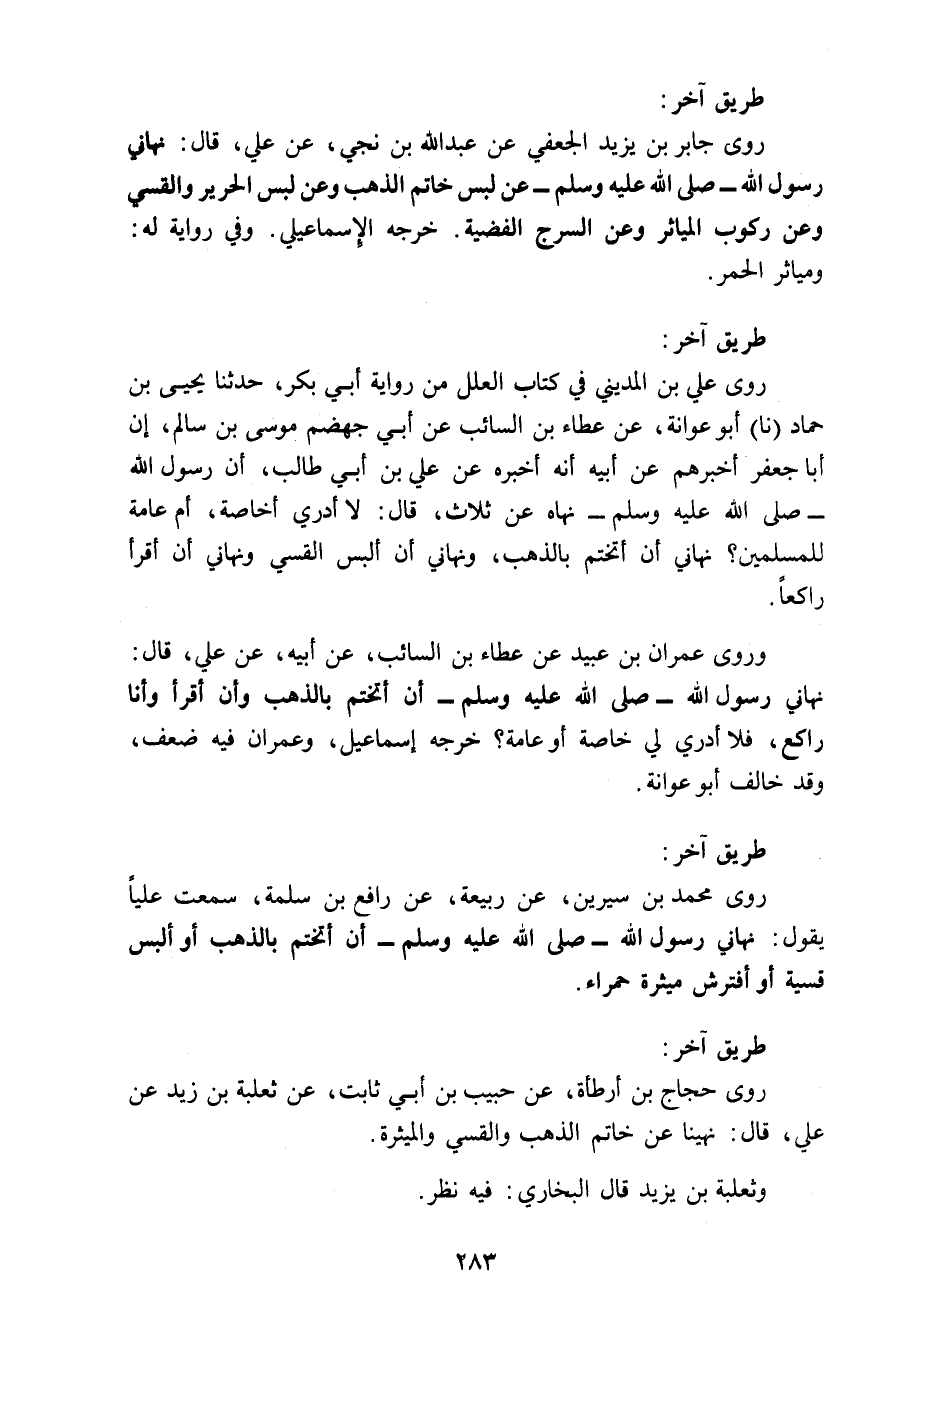 طريق آخر:
روى جابر بن يزيد الجعفي عن عبدالله بن نجي، عن علي، قال: نهاني
رسول الله ــ صلى الله عليه وسلم ــ عن لبس خاتم الذهب وعن لبس الحرير والقسي
وعن ركوب المياثر وعن السرج الفضية. خرجه الإسماعيلي. وفي رواية له:
ومياثر الحمر.
طريق آخر:
روى علي بن المديني في كتاب العلل من رواية أبي بكر، حدثنا يحيى بن
حماد (نا) أبو عوانة، عن عطاء بن السائب عن أبي جهضم موسى بن سالم، إن
أبا جعفر أخبرهم عن أبيه أنه أخبره عن علي بن أبي طالب، أن رسول الله
ــ صلى الله عليه وسلم ــ نهاه عن ثلاث، قال: لا أدري أخاصة، أم عامة
للمسلمين؟ نهاني أن أتختم بالذهب، ونهاني أن ألبس القسي ونهاني أن أقرأ
راكعاً.
وروى عمران بن عبيد عن عطاء بن السائب، عن أبيه، عن علي، قال:
نهاني رسول الله ــ صلى الله عليه وسلم ــ أن أتختم بالذهب وأن أقرأ وأنا
راكع، فلا أدري لي خاصة أو عامة؟ خرجه إسماعيل، وعمران فيه ضعف،
وقد خالف أبو عوانة.
طريق آخر:
روى محمد بن سيرين، عن ربيعة، عن رافع بن سلمة، سمعت علياً
يقول: نهاني رسول الله ــ صلى الله عليه وسلم ــ أن أتختم بالذهب أو ألبس
قسية أو أفترش ميثرة حمراء.
طريق آخر:
روى حجاج بن أرطأة، عن حبيب بن أبي ثابت، عن ثعلبة بن زيد عن
علي، قال: نهينا عن خاتم الذهب والقسي والميثرة.
وثعلبة بن يزيد قال البخاري: فيه نظر.
٢٨٣